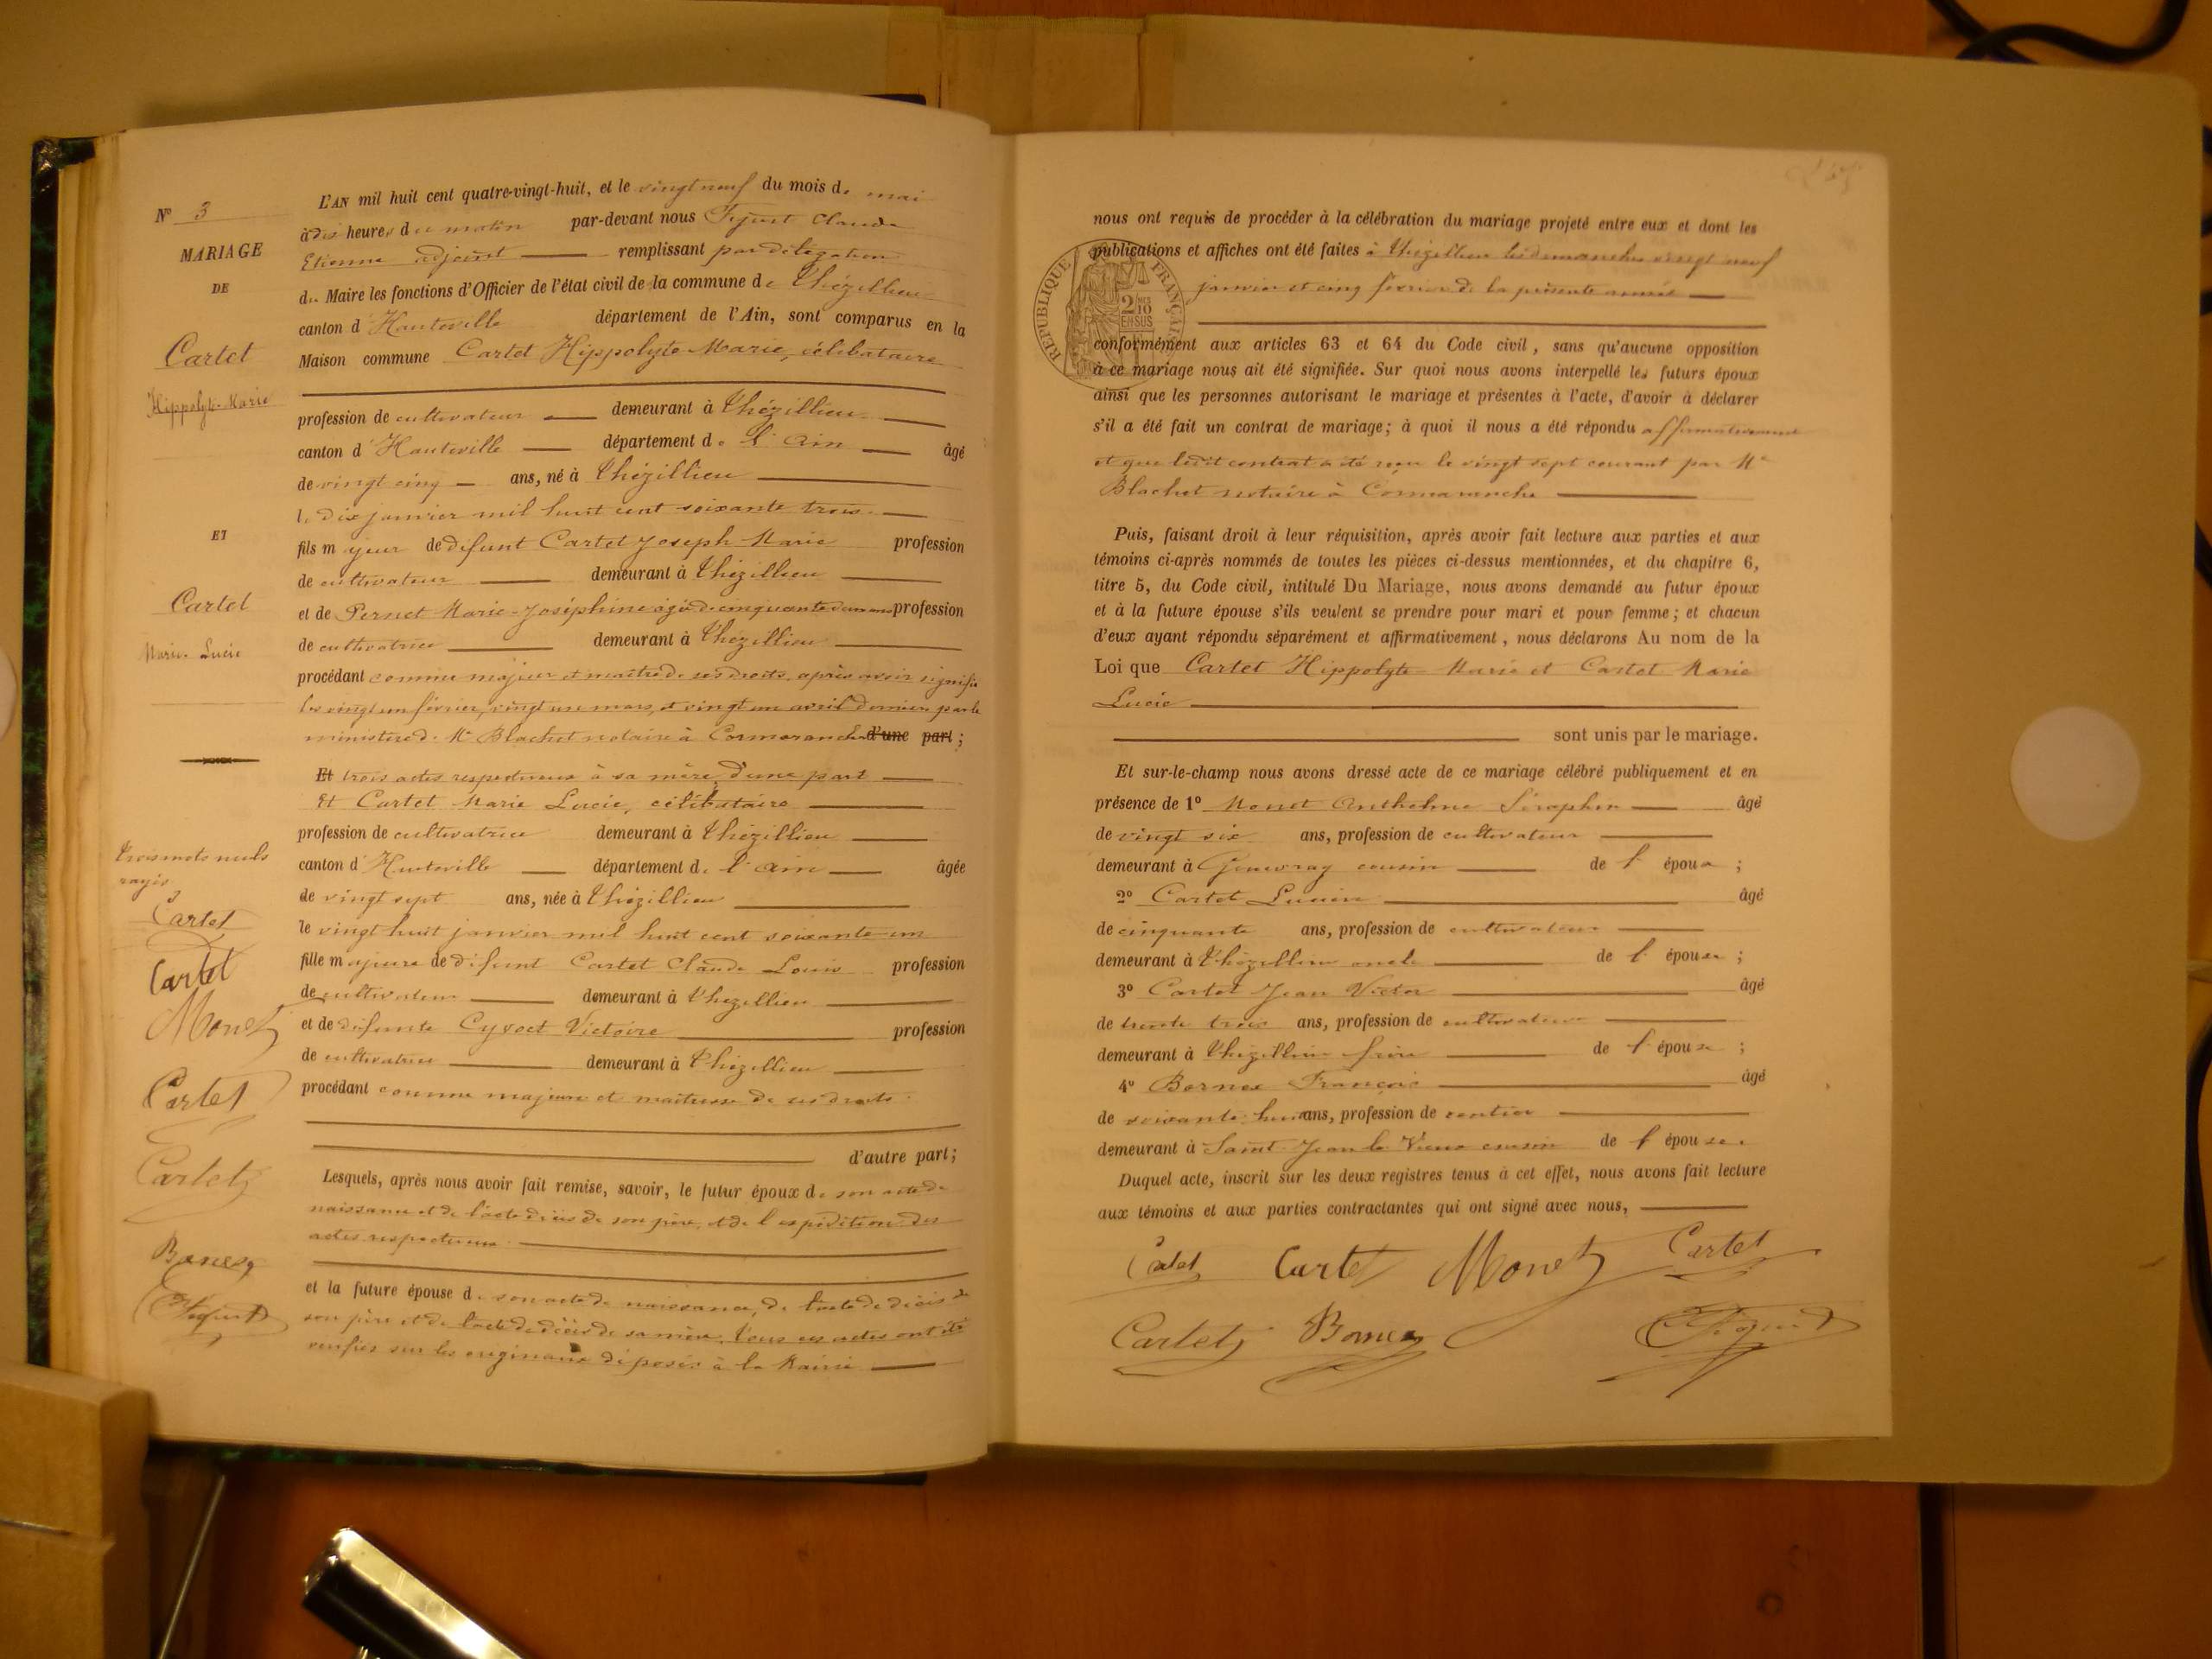 N° 3
MARIAGE
DE
Cartet
Hippolyte-Marie
ET
Cartet
Marie-Lucie
trois mots nuls
rayés
Cartet
Cartet
Monet
Cartet
Cartet
L'AN mil huit cent quatre-vingt-huit, et le vingt neuf du mois de mai
à dix heures du matin par-devant nous Claude
Etienne adjoint remplissant par délégation
du Maire les fonctions d'Officier de l'état civil de la commune de Thézillieu
canton d'Hauteville département de l'Ain, sont comparus en la
Maison commune Cartet Hippolyte Marie, célibataire
profession de cultivateur demeurant à Thézillieu
canton d'Hauteville département de l'Ain âgé
de vingt cinq ans, né à Thézillieu
le dix janvier mil huit cent soixante trois
fils majeur de défunt Cartet Joseph Marie profession
de cultivateur demeurant à Thézillieu
et de Pernet Marie-Joséphine âgée de cinquante deux ans profession
de cultivatrice demeurant à Thézillieu
procédant comme majeur et maître de ses droits, après avoir signifié
les vingt un février, vingt un mars, et vingt un avril dernier par le
ministère de Me Blachet notaire à Cormaranche d'une part ;
Et trois actes respectueux à sa mère, d'une part
Et Cartet Marie Lucie, célibataire
profession de cultivatrice demeurant à Thézillieu
canton d'Hauteville département de l'Ain âgée
de vingt sept ans, née à Thézillieu
le vingt huit janvier mil huit cent soixante-un
fille majeure de défunt Cartet Claude Louis profession
de cultivateur demeurant à Thézillieu
et de défunte Victoire profession
de cultivatrice demeurant à Thézillieu
procédant comme majeure et maîtresse de ses droits.
d'autre part;
Lesquels, après nous avoir fait remise, savoir, le futur époux de son acte de
naissance et de l'acte de décès de son père, et de l'expédition des
actes respectueux
et la future épouse de son acte de naissance, de l'acte de décès de
son père et de l'acte de décès de sa mère. Tous ces actes ont été
verifiés sur les originaux déposés à la Mairie
nous ont requis de procéder à la célébration du mariage projeté entre eux et dont les
publications et affiches ont été faites à Thézillieu les dimanches vingt neuf
janvier et cinq février de la présente année
RÉPUBLIQUE FRANÇAISE
2/10 EN SUS
conformément aux articles 63 et 64 du Code civil, sans qu'aucune opposition
à ce mariage nous ait été signifiée. Sur quoi nous avons interpellé les futurs époux
ainsi que les personnes autorisant le mariage et présentes à l'acte, d'avoir à déclarer
s'il a été fait un contrat de mariage; à quoi il nous a été répondu affirmativement
et que ledit contrat a été reçu le vingt sept courant par Me
Blachet notaire à Cormaranche
Puis, faisant droit à leur réquisition, après avoir fait lecture aux parties et aux
témoins ci-après nommés de toutes les pièces ci-dessus mentionnées, et du chapitre 6,
titre 5, du Code civil, intitulé Du Mariage, nous avons demandé au futur époux
et à la future épouse s'ils veulent se prendre pour mari et pour femme; et chacun
d'eux ayant répondu séparément et affirmativement, nous déclarons Au nom de la
Loi que Cartet Hippolyte-Marie et Cartet Marie
Lucie
sont unis par le mariage.
Et sur-le-champ nous avons dressé acte de ce mariage célébré publiquement et en
présence de 1° Monet Anthelme Séraphin âgé
de vingt six ans, profession de cultivateur
demeurant à cousin de l'époux ;
2° Cartet Lucien âgé
de cinquante ans, profession de cultivateur
demeurant à Thézillieu oncle de l'épouse ;
3° Cartet Jean Victor âgé
de trente trois ans, profession de cultivateur
demeurant à Thézillieu frère de l'épouse ;
4° François âgé
de soixante huit ans, profession de rentier
demeurant à Saint Jean le Vieux cousin de l'épouse.
Duquel acte, inscrit sur les deux registres tenus à cet effet, nous avons fait lecture
aux témoins et aux parties contractantes qui ont signé avec nous,
Cartet Cartet Monet Cartet
Cartet